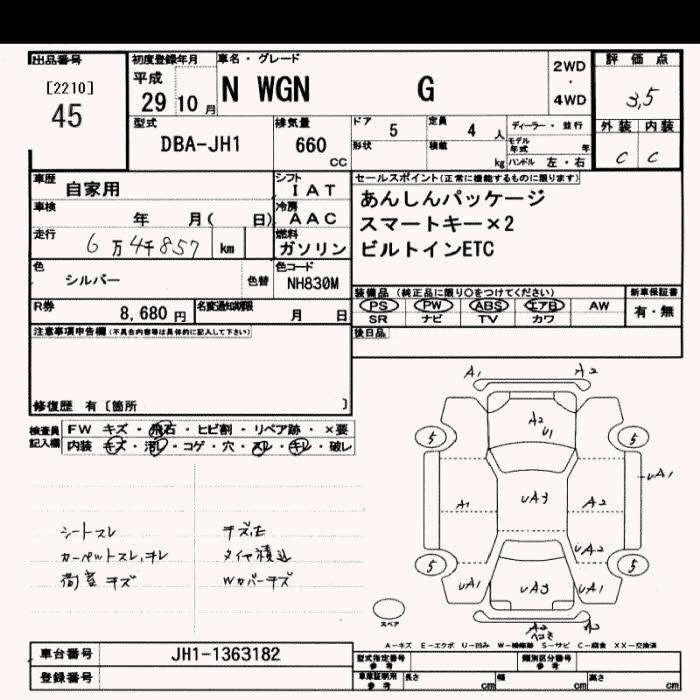 出品番号
[2210]
45
初度登録年月
平成
29 10 月
車名・グレード
N WGN G
2WD
・
4WD
評価点
3,5
外装 内装
C C
型式
DBA-JH1
排気量
660 CC
ドア 5
定員 4 人
形状
積載 kg
ディーラー・並行
モデル年式 年
ハンドル 左・右
車歴 自家用
シフト I A T
車検 年 月( 日)
冷房 A A C
走行 6万4千857 km
燃料 ガソリン
セールスポイント(正常に機能するものに限ります)
あんしんパッケージ
スマートキー×2
ビルトインETC
色 シルバー 色替
色コード NH830M
装備品 (純正品に限り○をつけてください)
PS PW ABS エアB AW
SR ナビ TV カワ
新車保証書
有・無
R券 8,680 円
名変通知期限 月 日
後日品
注意事項申告欄(不具合内容等は具体的に記入して下さい)
修復歴 有〔箇所 〕
検査員記入欄
FW キズ・飛石・ヒビ割・リペア跡・×要
内装 キズ・汚レ・コゲ・穴・スレ・キレ・破レ
シートスレ
カーペットスレ,キレ
荷室キズ
タイヤ積込
Wカバーキズ
A1 A2
A2
U1
5 5
UA1
A1 UA3 A2
UA2
5 5
UA1 UA3 UA1
A2 A2
ヘコミ
スペア
A-キズ E-エクボ U-凹み W-補修跡 S-サビ C-腐食 XX-交換済
車台番号 JH1-1363182
登録番号
型式指定番号 参考
類別区分番号 参考
車庫証明用 参考
長さ cm
幅 cm
高さ cm